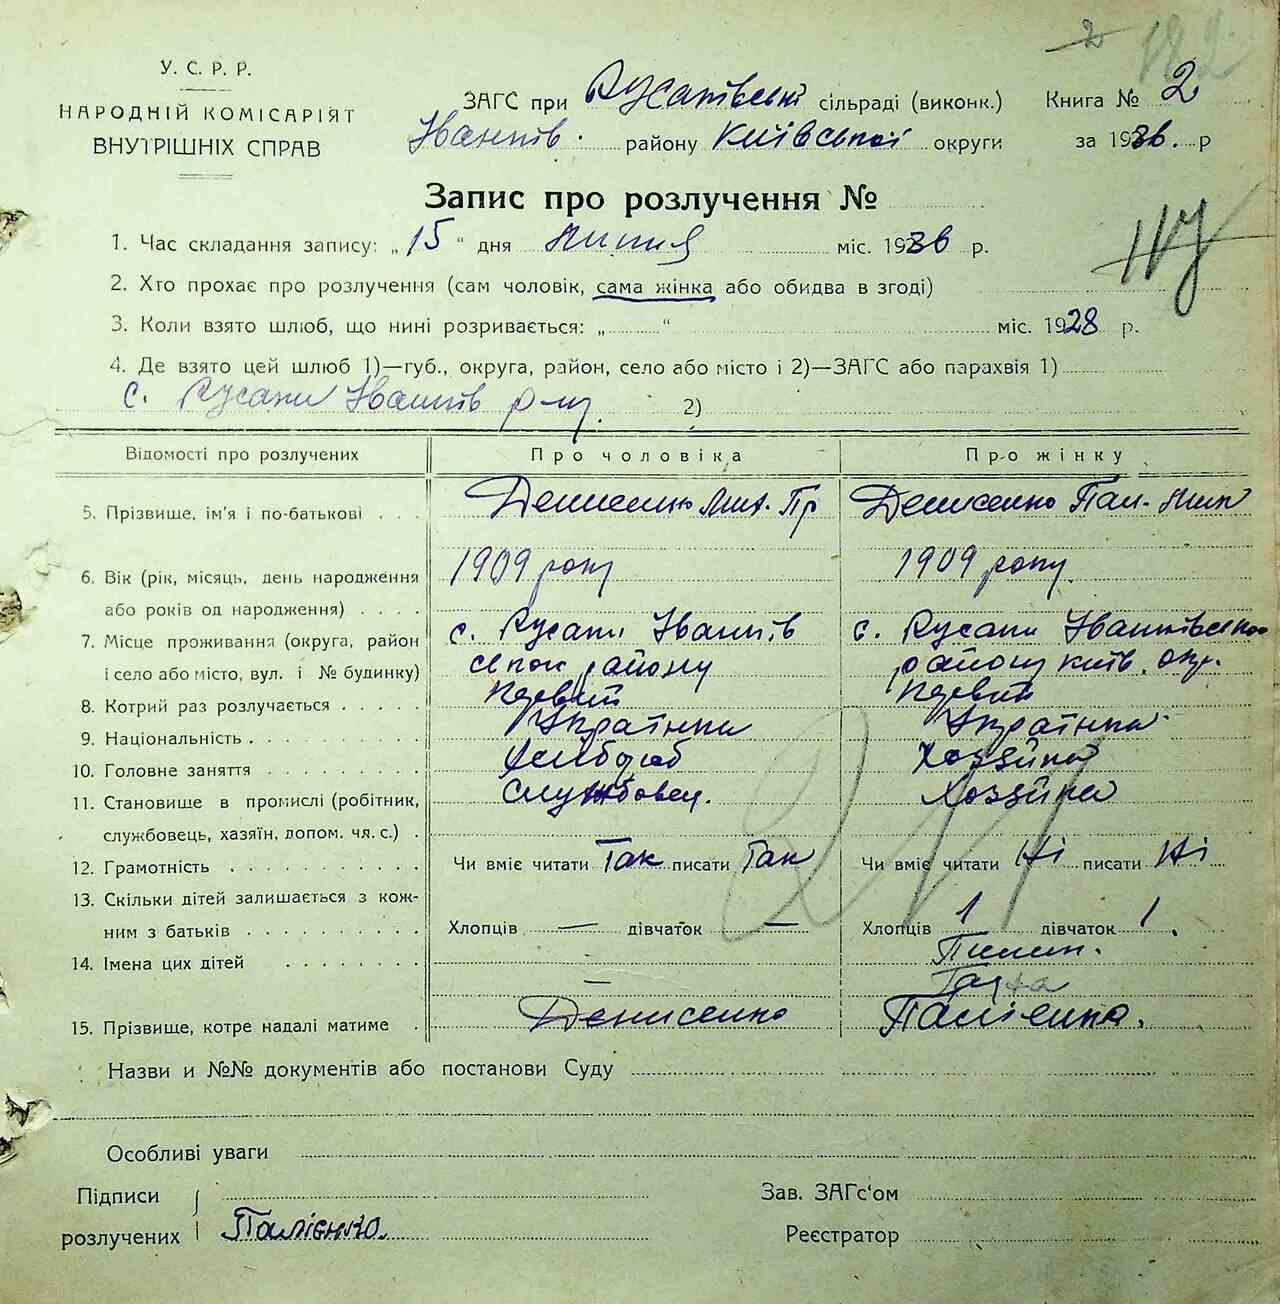 2 182
У. С. Р. Р.
НАРОДНІЙ КОМІСАРІЯТ
ВНУТРІШНІХ СПРАВ
ЗАГС при Русаківській сільраді (виконк.) Книга № 2
Іванків. району Київської округи за 1936. р
Запис про розлучення №
1. Час складання запису: „ 15 “ дня Липня міс. 1936 р.
2. Хто прохає про розлучення (сам чоловік, сама жінка або обидва в згоді)
3. Коли взято шлюб, що нині розривається: „ “ міс. 1928 р.
4. Де взято цей шлюб 1)—губ., округа, район, село або місто і 2)—ЗАГС або парахвія 1)
с. Русаки Іванків р-ну. 2)
Відомості про розлучених Про чоловіка Про жінку
5. Прізвище, ім'я і по-батькові Денисенко Мих. Пр Денисенко Пал. Мик
6. Вік (рік, місяць, день народження 1909 року 1909 року.
або років од народження)
7. Місце проживання (округа, район с. Русаки Іванків с. Русаки Іванківського
і село або місто, вул. і № будинку) ського району району Київ. окр.
8. Котрий раз розлучається первий первий
9. Національність Українка Українка
10. Головне заняття Хлібороб Хозяйка
11. Становище в промислі (робітник, Службовец. Хозяйка
службовець, хазяїн, допом. чл. с.)
12. Грамотність Чи вміє читати Так писати Так Чи вміє читати Ні писати Ні
13. Скільки дітей залишається з кож-
ним з батьків Хлопців — дівчаток — Хлопців 1 дівчаток 1.
14. Імена цих дітей — Пилип.
Галька
15. Прізвище, котре надалі матиме Денисенко Палієнко.
Назви и №№ документів або постанови Суду
Особливі уваги
Підписи Зав. ЗАГс'ом
розлучених Палієнко. Реєстратор